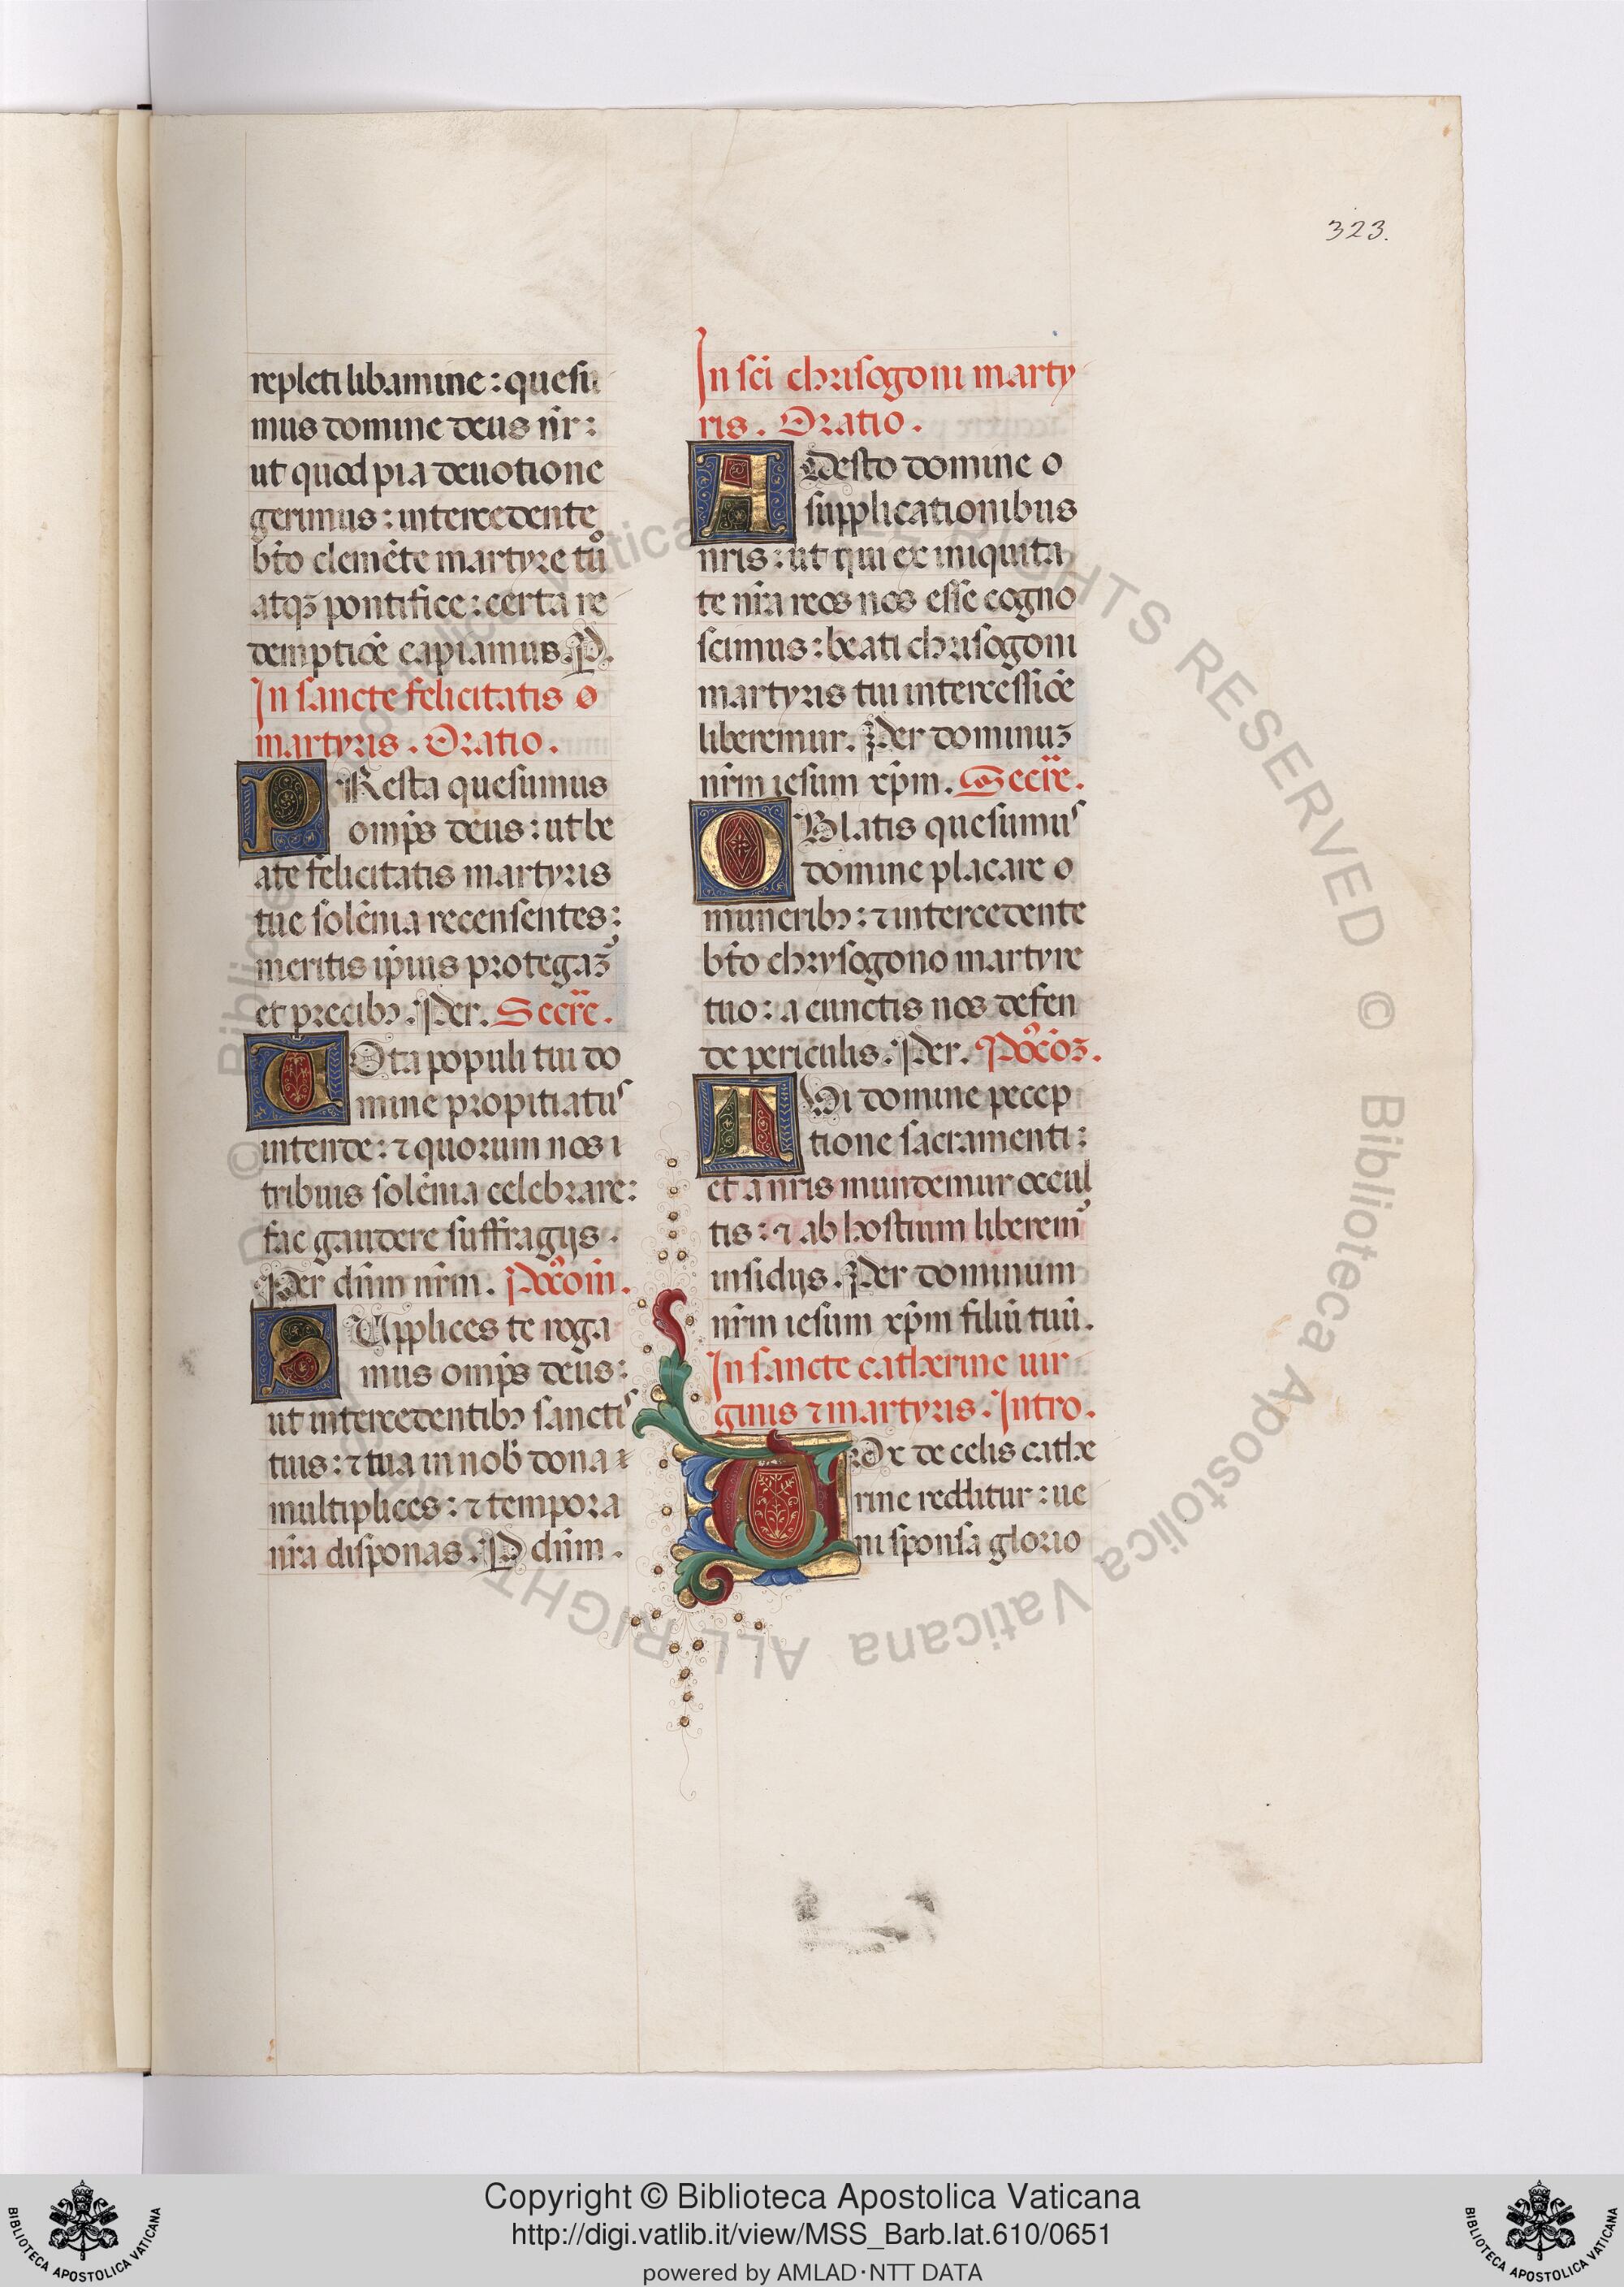 323.
repleti libamine : quesu
mus domine deus nr̄ :
ut quod pia deuotione
gerimus : intercedente
bt̄o clemēte martyre tuo
atqꝫ pontifice : certa re
demptiōe capiamus. P.
In sancte felicitatis o
martyris . Oratio .
PResta quesumus
omps̄ deus : ut be
ate felicitatis martyris
tue solēnia recensentes :
meritis ipius protegamꝰ
et precibꝫ . Per . Secr̄e .
UOta populi tui do
mine propitiatus
intende : ⁊ quorum nos i
tribuis solēnia celebrare :
fac gaudere suffragijs .
Per dn̄m nr̄m . Poc̄oin̄ .
SUpplices te roga
mus omps̄ deus :
ut intercedentibꝫ sanctis
tuis : ⁊ tua in nob̄ dona
multiplices : ⁊ tempora
nr̄a disponas . P dn̄m .
In sc̄i chrisogoni marty
ris . Oratio .
ADesto domine o
supplicationibus
nr̄is : ut qui ex iniquita
te nr̄a reos nos esse cogno
scimus : beati chrisogoni
martyris tui intercessiōe
liberemur . Per dominuꝫ
nr̄m iesum xp̄m . Secr̄e .
OBlatis quesumus
domine placare o
muneribꝫ : ⁊ intercedente
bt̄o chrysogono martyre
tuo : a cunctis nos defen
de periculis . Per . Poc̄oꝫ .
TUi domine ꝑcep
tione sacramenti :
et a nr̄is mundemur occul
tis : ⁊ ab hostium liberemꝰ
insidijs . Per dominum
nr̄m iesum xp̄m filiū tuū .
In sancte catherine uir
ginis ⁊ martyris . Intro .
de celis cathe
rine redditur : ue
ni sponsa glorio
Copyright © Biblioteca Apostolica Vaticana
http://digi.vatlib.it/view/MSS_Barb.lat.610/0651
powered by AMLAD·NTT DATA
BIBLIOTECA APOSTOLICA VATICANA
BIBLIOTECA APOSTOLICA VATICANA